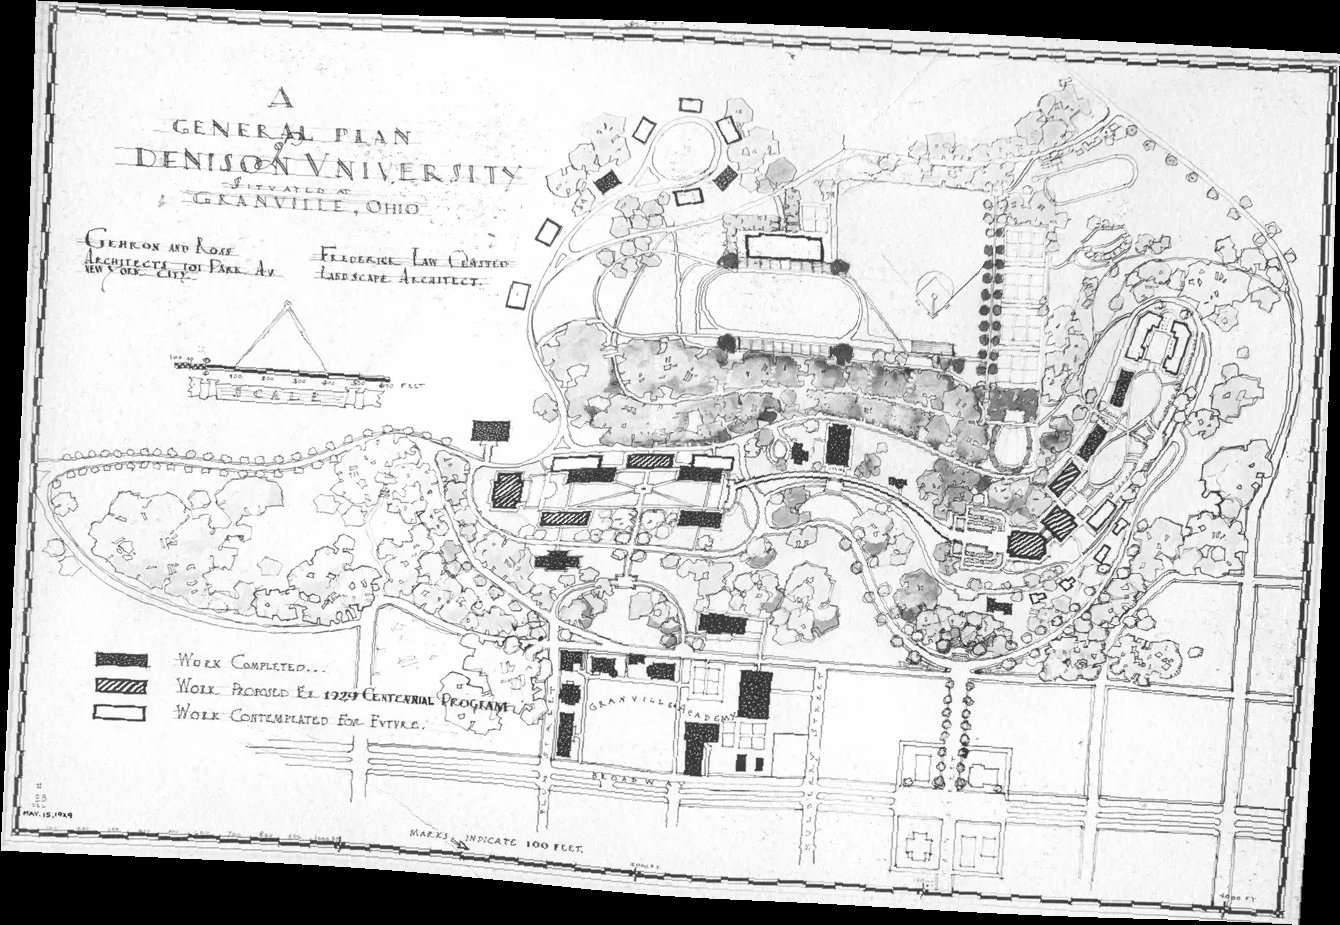 A
GENERAL PLAN
OF
DENISON VNIVERSITY
SITVATED AT
GRANVILLE, OHIO
GEHRON AND ROSS
ARCHITECTS 101 PARK AV
NEW YORK CITY
FREDERICK LAW OLMSTED
LANDSCAPE ARCHITECT.
100 200 300 400 500 600 FEET
SCALE
WORK COMPLETED...
WORK PROPOSED BY 1929 CENTENNIAL PROGRAM
WORK CONTEMPLATED FOR FVTVRE.
GRANVILLE ACADEMY
BROADWAY
STREET
MAY. 15, 1929
MARKS INDICATE 100 FEET.
4000 FT